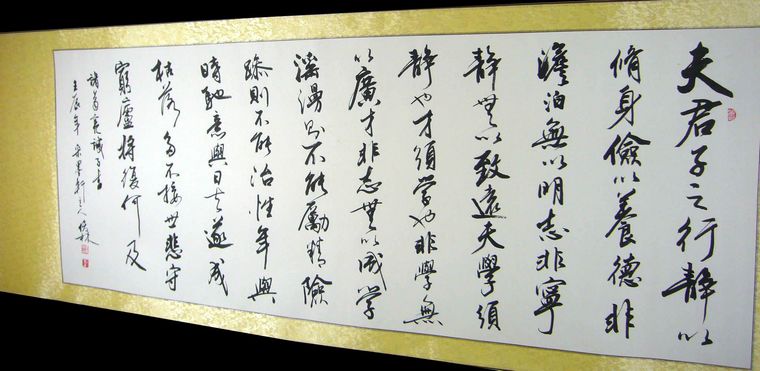 夫君子之行静以
脩身儉以養德非
澹泊無以明志非寧
静無以致遠夫學須
静也才須學也非學無
以廣才非志無以成學
滛漫則不能勵精險
躁則不能治性年與
時馳意與日去遂成
枯落多不接世悲守
窮廬將復何及
諸葛亮誡子書
壬辰年